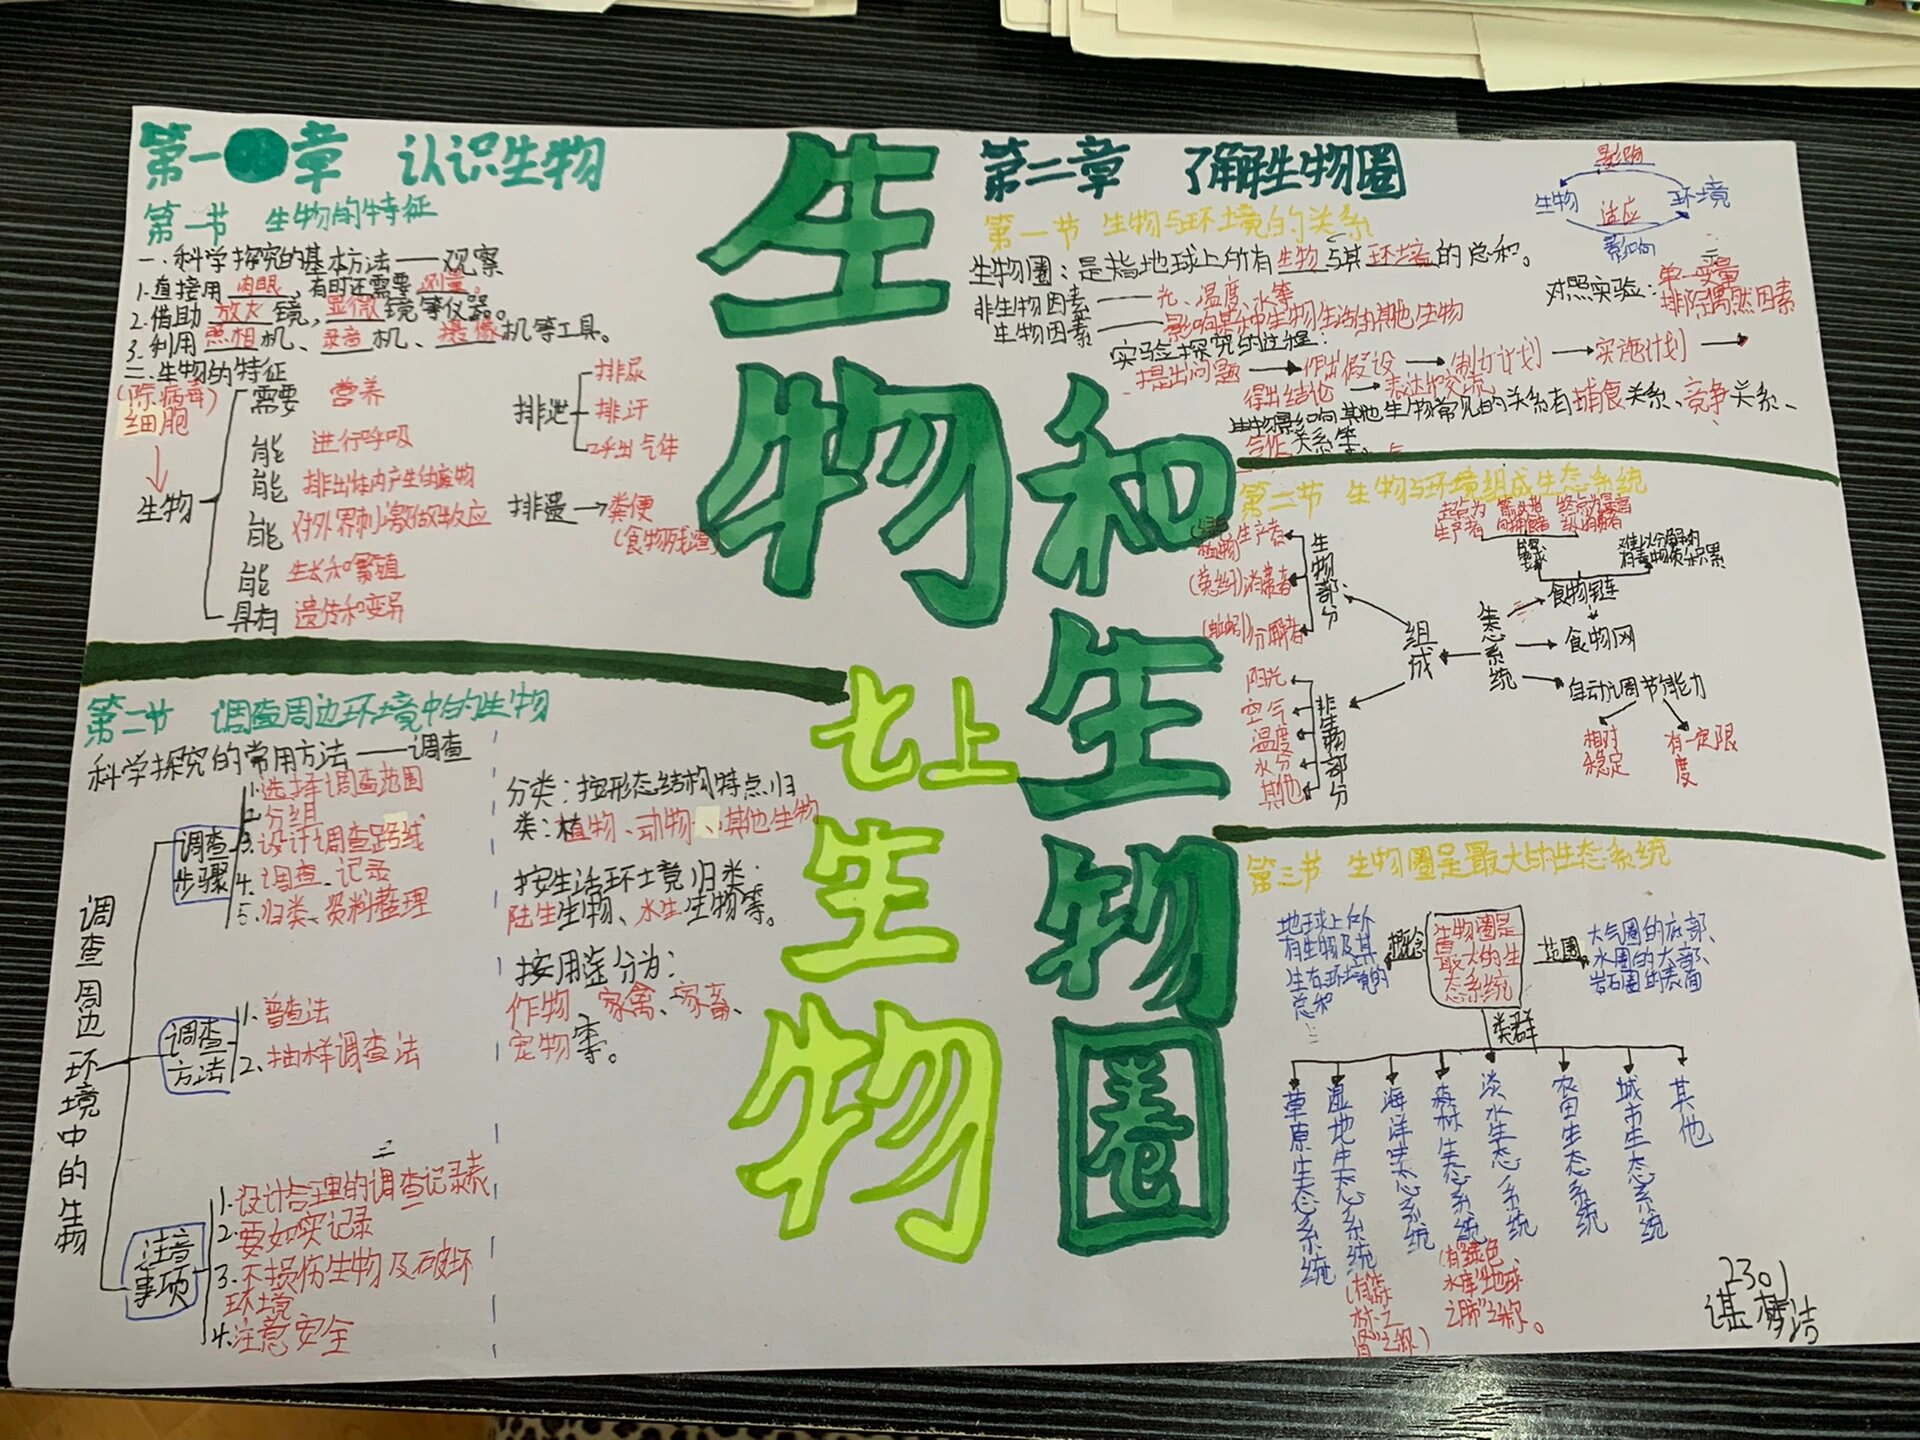 第一章 认识生物
第一节 生物的特征
一.科学探究的基本方法——观察
1.直接用肉眼,有时还需要测量。
2.借助放大镜,显微镜等仪器。
3.利用照相机、录音机、摄像机等工具。
二.生物的特征
(除病毒)
细胞
生物
需要 营养
能 进行呼吸
能 排出体内产生的废物
能 对外界刺激做出反应
能 生长和繁殖
具有 遗传和变异
排泄
排尿
排汗
呼出气体
排遗→粪便
(食物残渣)
第二节 调查周边环境中的生物
科学探究的常用方法——调查
调查周边环境中的生物
调查步骤
1.选择调查范围
2.分组
3.设计调查路线
4.调查、记录
5.归类、资料整理
调查方法
1.普查法
2.抽样调查法
注意事项
1.设计合理的调查记录表
2.要如实记录
3.不损伤生物及破坏
环境
4.注意安全
分类:按形态结构特点归
类:植物、动物、其他生物
按生活环境归类:
陆生生物、水生生物等。
按用途分为:
作物、家禽、家畜、
宠物等。
生物和生物圈
七上生物
第二章 了解生物圈
第一节 生物与环境的关系
影响
生物 适应 环境
影响
生物圈:是指地球上所有生物与其环境的总和。
非生物因素——光、温度、水等
生物因素——影响某种生物生活的其他生物
对照实验:单一变量
排除偶然因素
实验探究的过程:
提出问题→作出假设→制订计划→实施计划→
得出结论→表达和交流
生物影响其他生物常见的关系有捕食关系、竞争关系、
合作关系等。
第二节 生物与环境组成生态系统
生态系统
组成
生物部分
生产者
消费者
分解者
非生物部分
阳光
空气
温度
水分
其他
起点为
生产者
食物链
食物网
自动调节能力
相对
稳定
有一定限
度
第三节 生物圈是最大的生态系统
生物圈是
最大的生
态系统
概念
地球上所
有生物及其
生存环境的
总和
范围
大气圈的底部、
水圈的大部、
岩石圈的表面
类群
草原生态系统
湿地生态系统
海洋生态系统
森林生态系统
淡水生态系统
农田生态系统
城市生态系统
其他
(有"绿色
水库""地球
之肺"之称。
2301